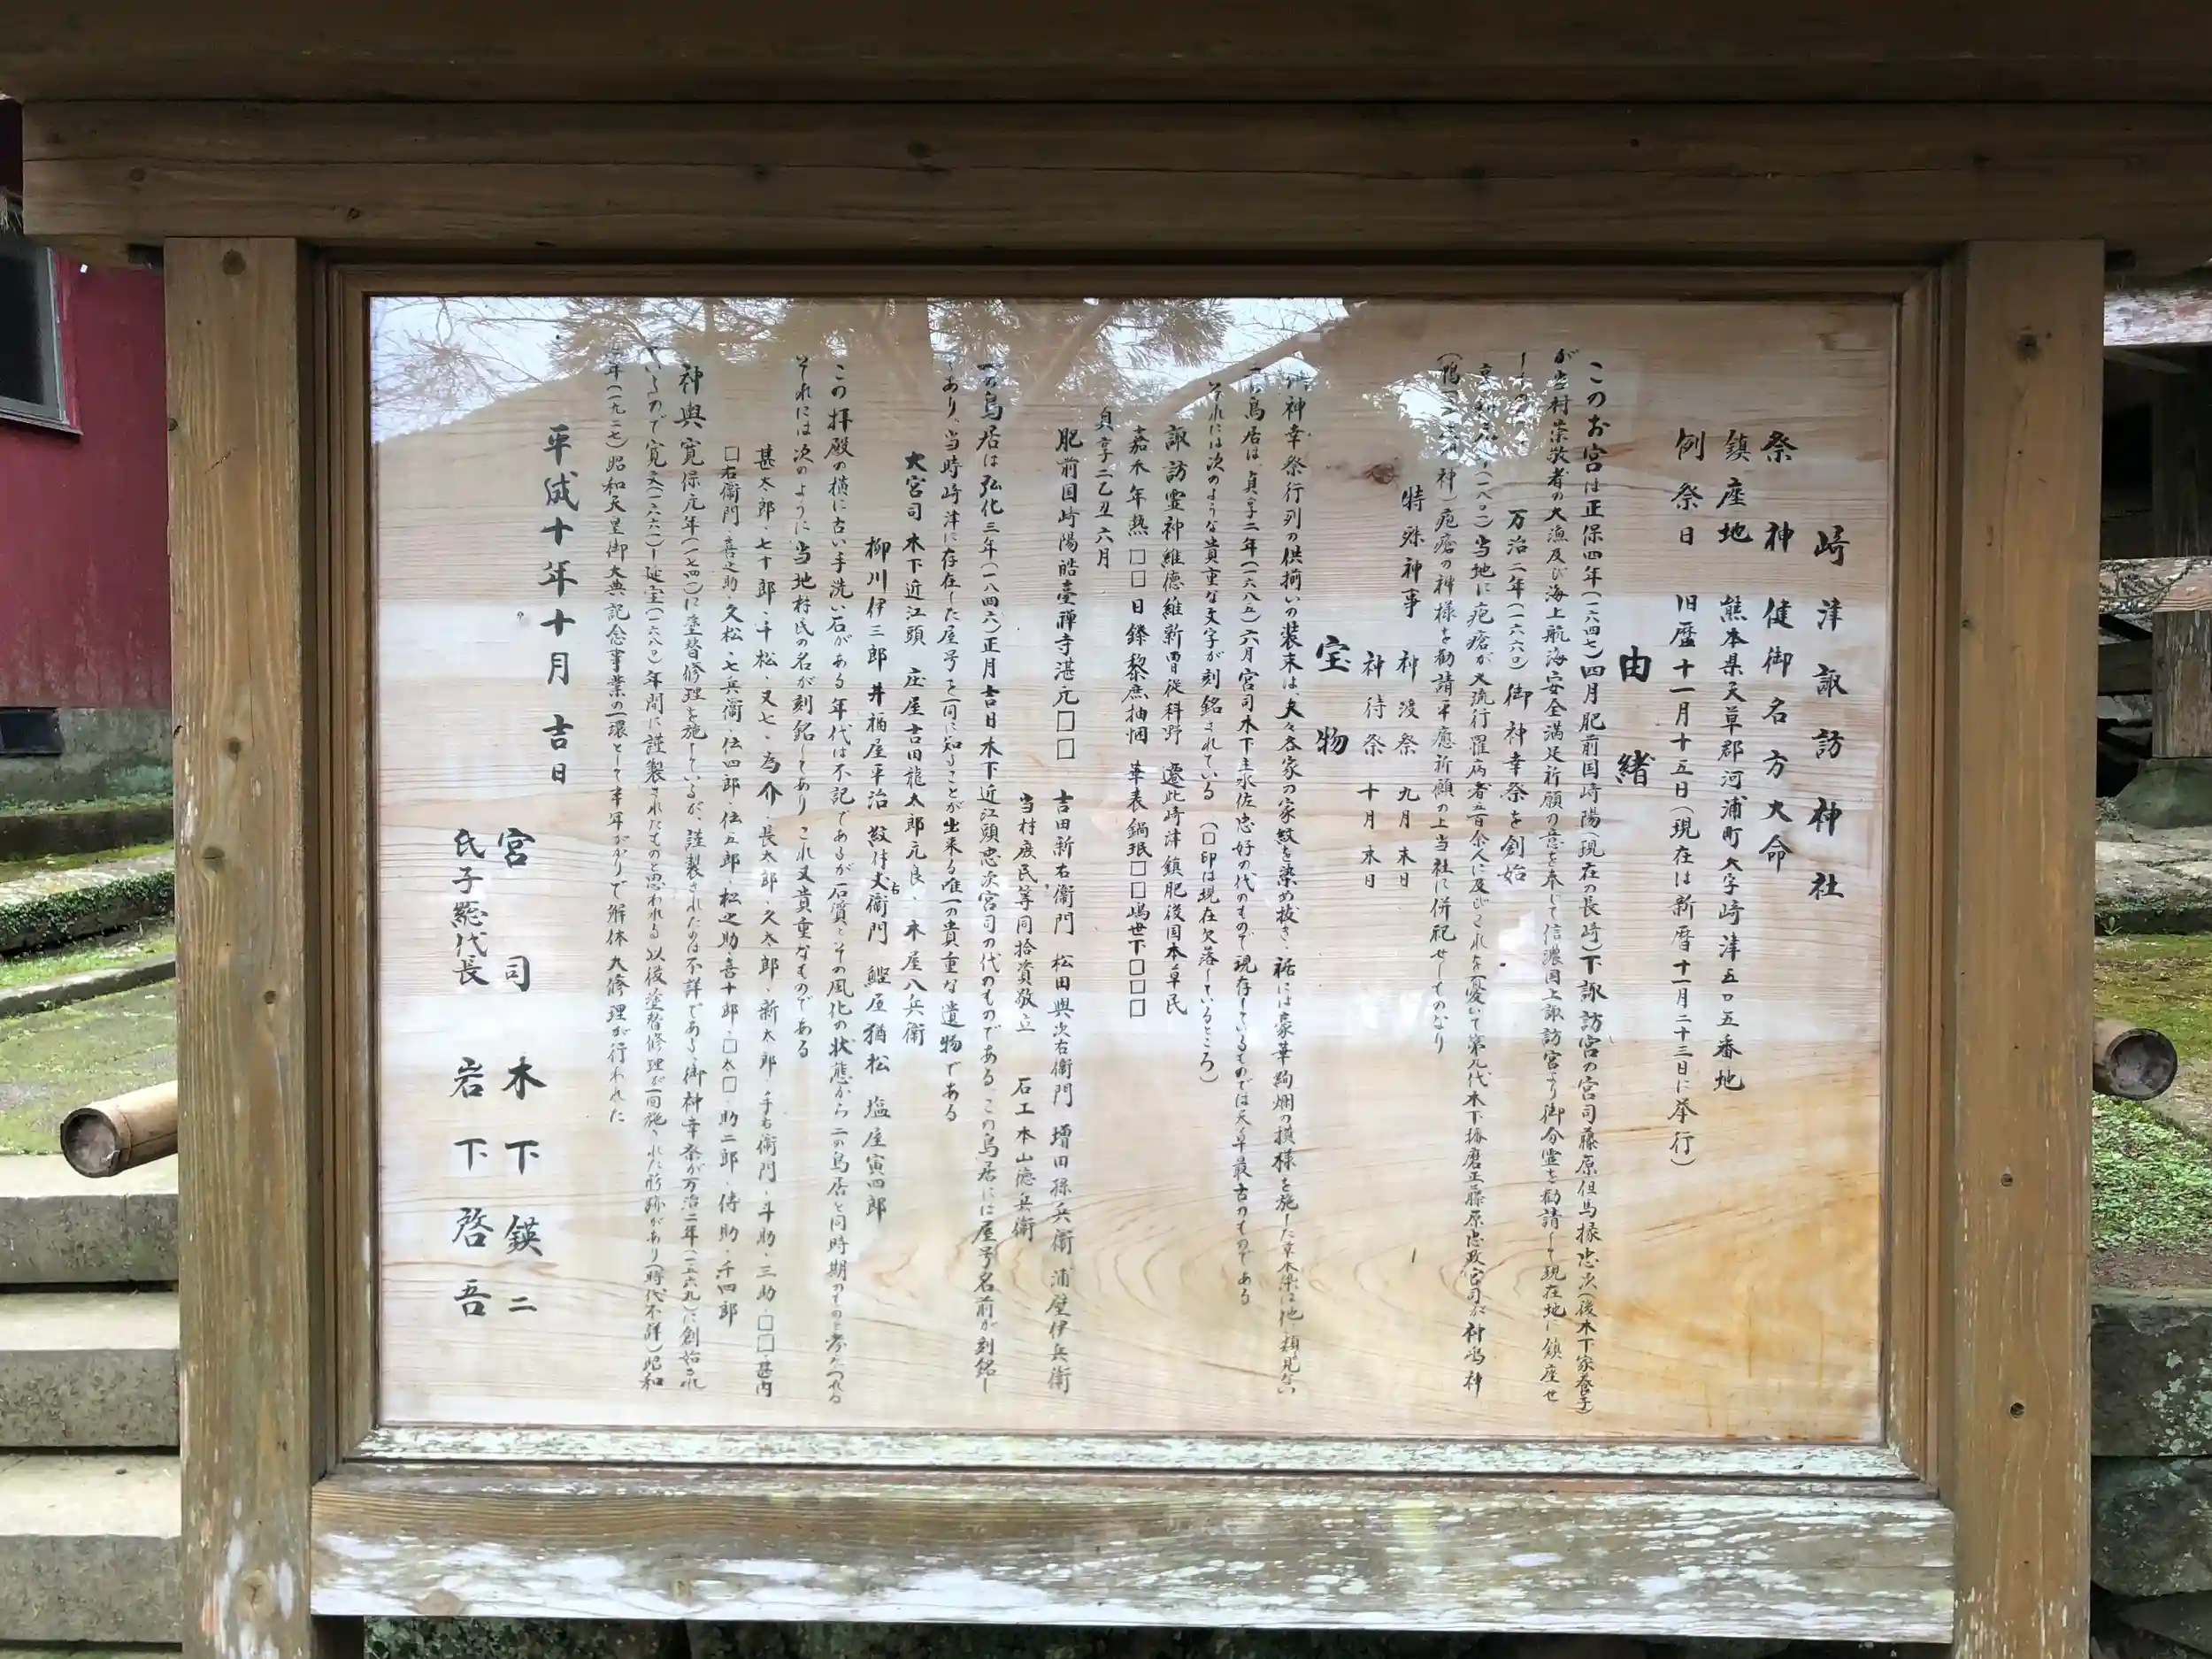 崎津諏訪神社
祭神 健御名方大命
鎮座地 熊本県天草郡河浦町大字崎津五〇五番地
例祭日 旧暦十一月十五日(現在は新暦十一月二十三日に挙行)
由緒
このお宮は正保四年(一六四七)四月肥前国崎陽(現在の長崎)下諏訪宮の宮司藤原但馬掾忠次(後木下家養子)
が当村崇敬者の大漁及び海上航海安全満足祈願の意を奉じて信濃国上諏訪宮より御分霊を勧請して現在地に鎮座せ
万治二年(一六六〇)御神幸祭を創始
(一八〇二)当地に疱瘡が大流行罹病者五百余人に及びこれを憂いて第九代木下播磨正藤原忠政宮司が神嶋神
神)疱瘡の神様を勧請平癒祈願の上当社に併祀せしものなり
特殊神事 神渡祭 九月末日
神待祭 十月末日
宝物
神幸祭行列の供揃いの装束は、夫々各家の家紋を染め抜き、裾には豪華絢爛の模様を施した草木染は他に類見ない
鳥居は、貞享二年(一六八五)六月宮司木下主水佐忠好の代のもので現存しているものでは天草最古のものである
それには次のような貴重な文字が刻銘されている (□印は現在欠落しているところ)
諏訪霊神維徳維新曽従科野 遷此崎津鎮肥後国本草民
嘉禾年熟□□日鎽黎庶抽悃 華表鍋珉□□嶋世下□□□
貞享二乙丑六月
肥前国崎陽皓臺禅寺湛元□□ 吉田新右衛門 松田與次右衛門 増田孫兵衛 浦壁伊兵衛
当村庶民等同拾資敬立 石工本山徳兵衛
の鳥居は弘化三年(一八四六)正月吉日木下近江頭忠次宮司の代のものである、この鳥居には屋号名前が刻銘し
あり、当時崎津に存在した屋号を一同に知ることが出来る唯一の貴重な遺物である
大宮司 木下近江頭 庄屋吉田龍太郎元良、木屋八兵衛
柳川伊三郎 井桶屋平治 紋付丈右衛門 鰹屋猶松 塩屋寅四郎
この拝殿の横に古い手洗い石がある年代は不記であるが石質とその風化の状態から二の鳥居と同時期のものと考えられる
それには次のように当地村民の名が刻銘してあり これ又貴重なものである
甚太郎・七十郎・千松・又七・為介・長太郎・久太郎・新太郎・手右衛門・斗助・三助・□□・甚内
□右衛門・喜之助・久松・七兵衛・伝四郎・伝五郎・松之助・喜十郎・□太□・助二郎・侍助・千四郎
神輿 寛保元年(一七四一)に塗替修理を施しているが、謹製されたのは不詳であるが御神幸祭が万治二年(一五六九)に創始され
いるので寛文(一六六一)〜延宝(一六八〇)年間に謹製されたものと思われる 以後塗替修理が一回施された形跡があり(時代不詳)昭和
年(一九二七)昭和天皇御大典記念事業の一環として半年がかりで解体大修理が行われた
平成十年十月吉日
宮司 木下鍈二
氏子総代長 岩下啓吾